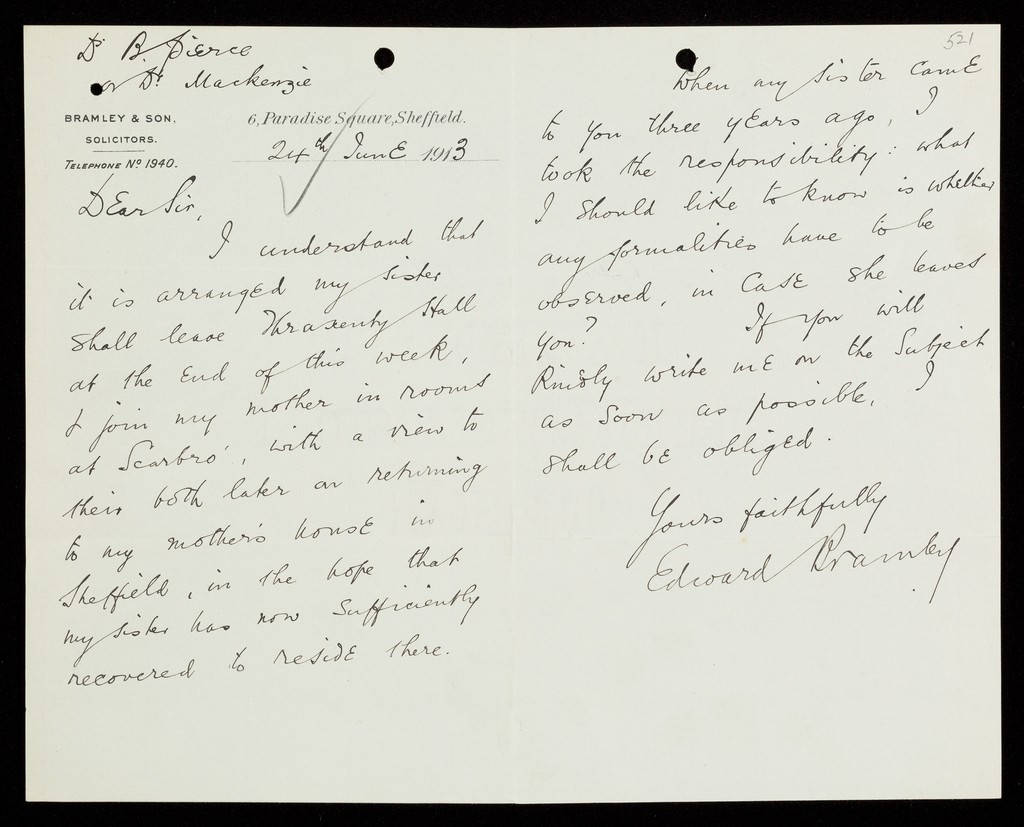 Dr B. Pierce
or Dr Mackenzie
BRAMLEY & SON,
SOLICITORS.
TELEPHONE No 1940.
6, Paradise Square, Sheffield.
24th June 1913
Dear Sir,
I understand that
it is arranged my sister
shall leave Thraxenby Hall
at the end of this week,
& join my mother in rooms
at Scarbro', with a view to
their both later on returning
to my mother's house in
Sheffield, in the hope that
my sister has now sufficiently
recovered to reside there.
521
When my sister came
to you three years ago, I
took the responsibility: what
I should like to know is whether
any formalities have to be
observed, in case she leaves
you? If you will
kindly write me on the subject
as soon as possible, I
shall be obliged.
Yours faithfully
Edward Bramley